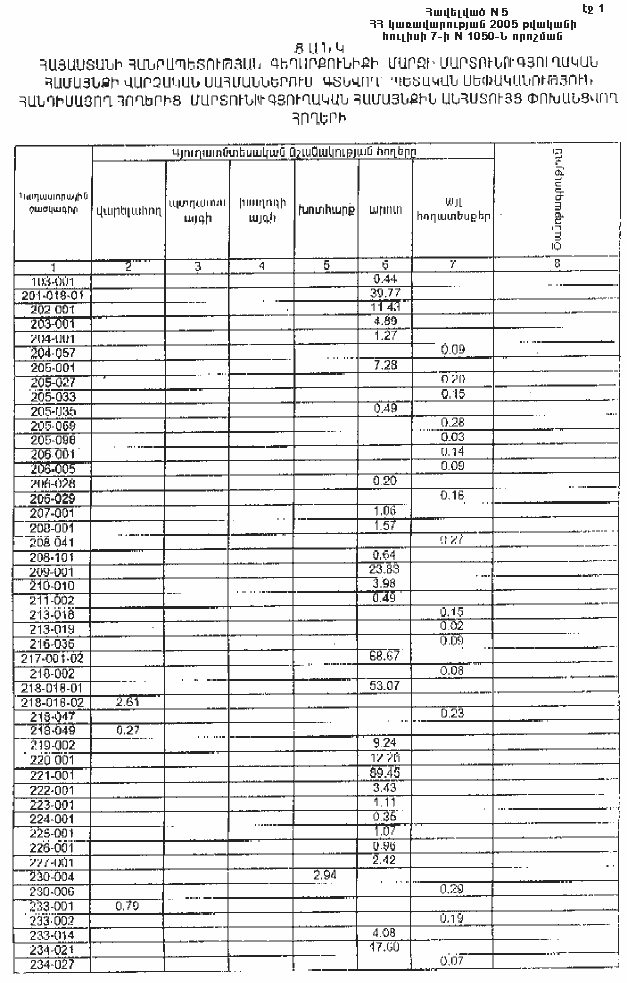 Հավելված N 5 էջ 1
ՀՀ կառավարության 2005 թվականի
հուլիսի 7-ի N 1050-Ն որոշման
ՑԱՆԿ
ՀԱՅԱՍՏԱՆԻ ՀԱՆՐԱՊԵՏՈՒԹՅԱՆ ԳԵՂԱՐՔՈՒՆԻՔԻ ՄԱՐԶԻ ՄԱՐՏՈՒՆՈՒ ԳՅՈՒՂԱԿԱՆ
ՀԱՄԱՅՆՔԻ ՎԱՐՉԱԿԱՆ ՍԱՀՄԱՆՆԵՐՈՒՄ ԳՏՆՎՈՂ ՊԵՏԱԿԱՆ ՍԵՓԱԿԱՆՈՒԹՅՈՒՆ
ՀԱՆԴԻՍԱՑՈՂ ՀՈՂԵՐԻՑ ՄԱՐՏՈՒՆՈՒ ԳՅՈՒՂԱԿԱՆ ՀԱՄԱՅՆՔԻՆ ԱՆՀԱՏՈՒՅՑ ՓՈԽԱՆՑՎՈՂ
ՀՈՂԵՐԻ
Գյուղատնտեսական նշանակության հողերը
Կադաստրային ծածկագիր վարելահող պտղատու այգի խաղողի այգի խոտհարք արոտ այլ հողատեսքեր
1 2 3 4 5 6 7 8
103-001 0.44
201-018-01 39.77
202-001 11.43
203-001 4.89
204-001 1.27
204-057 0.09
205-001 7.28
205-027 0.20
205-033 0.15
205-035 0.49
205-069 0.28
205-098 0.03
206-001 0.14
206-005 0.09
206-028 0.20
206-029 0.18
207-001 1.06
208-001 1.57
208-041 0.27
208-101 0.64
209-001 23.83
210-010 3.98
211-002 0.49
213-018 0.15
213-019 0.02
216-036 0.09
217-001-02 68.67
218-002 0.08
218-018-01 53.07
218-018-02 2.61
218-047 0.23
218-049 0.27
219-002 9.24
220-001 12.26
221-001 89.45
222-001 3.43
223-001 1.11
224-001 0.35
225-001 1.07
226-001 0.96
227-001 2.42
230-004 2.94
230-006 0.29
233-001 0.79
233-002 0.19
233-014 4.08
234-021 47.60
234-027 0.07